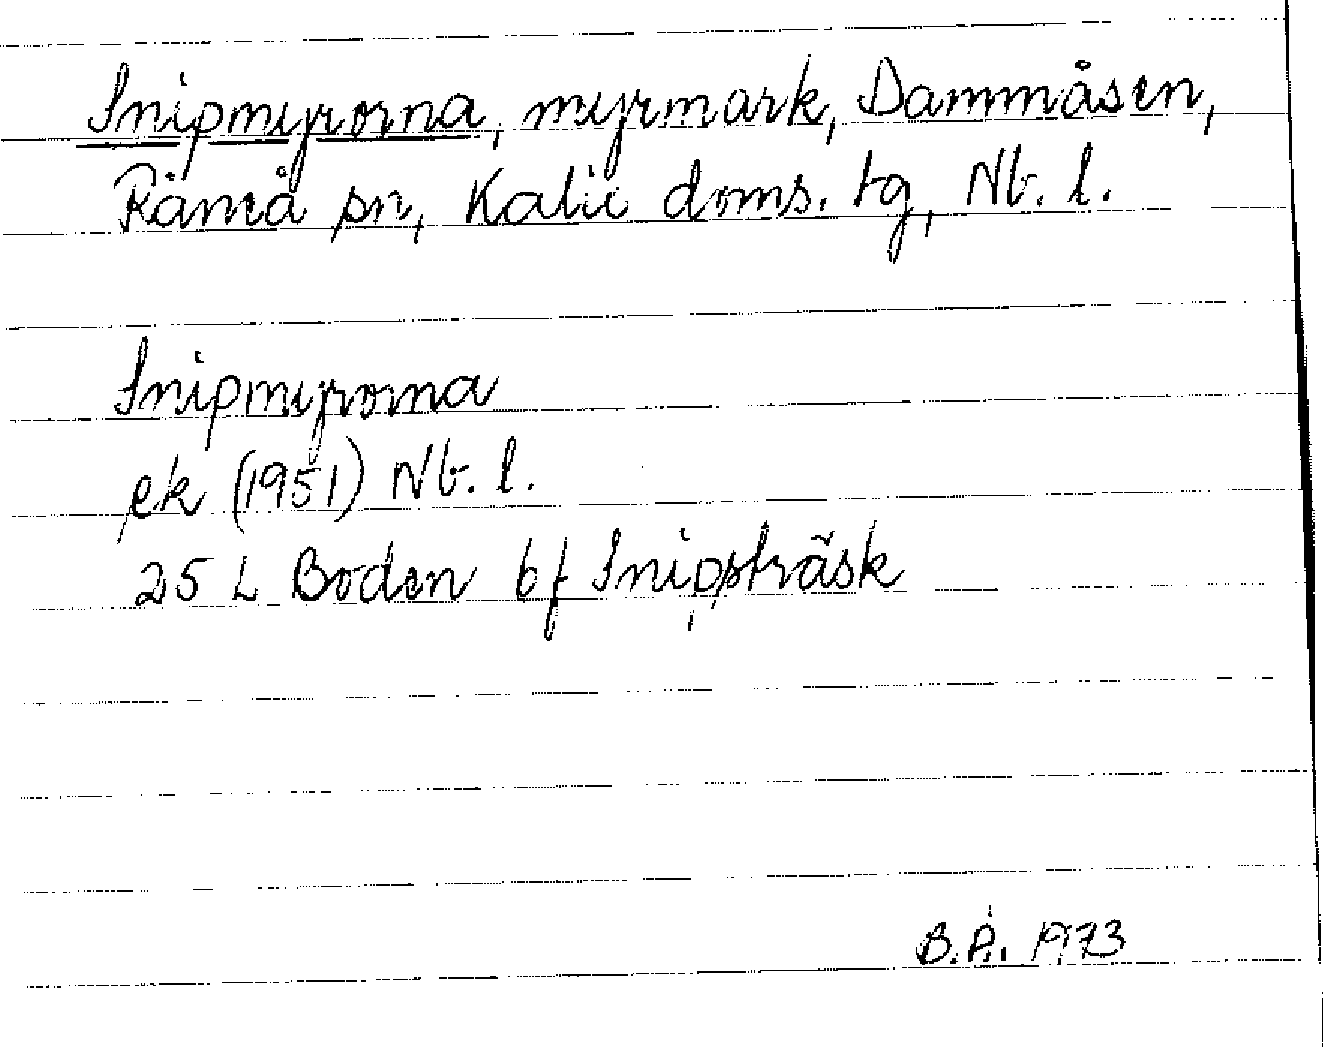 Snipmyrorna, myrmark, Dammåsen,
Råneå sn, Kalix doms. tg, Nb. l.
Snipmyrorna
ek (1951) Nb. l.
25 L Boden bf Snippträsk
B.Å. 1973